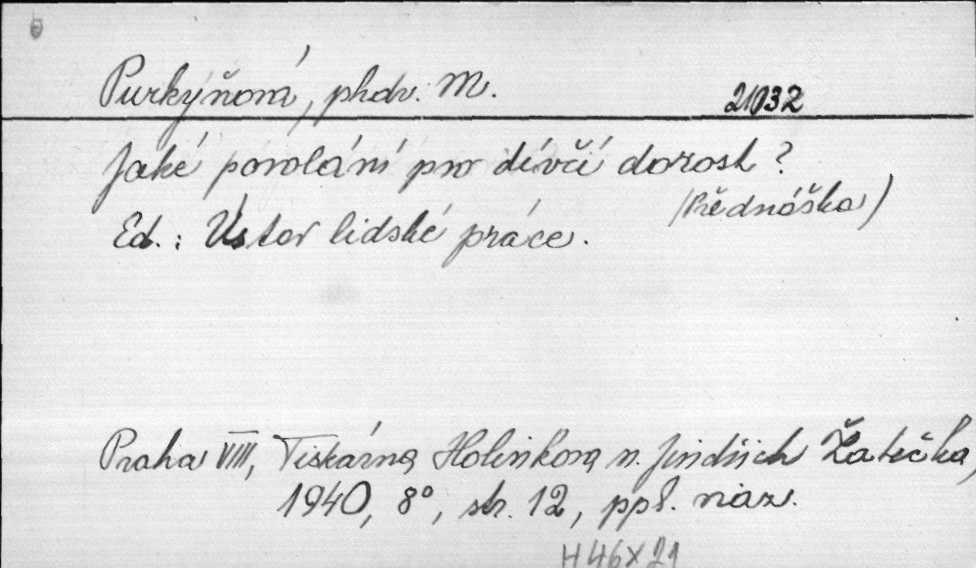 Purkyňová, phdr. M.
21032
Jaké povolání pro dívčí dorost?
(Přednáška)
Ed.: Ústav lidské práce.
Praha VIII, Tiskárna Holinkova n. Jindřich Žatečka,
1940, 8°, str. 12, ppř. váz.
H46X21